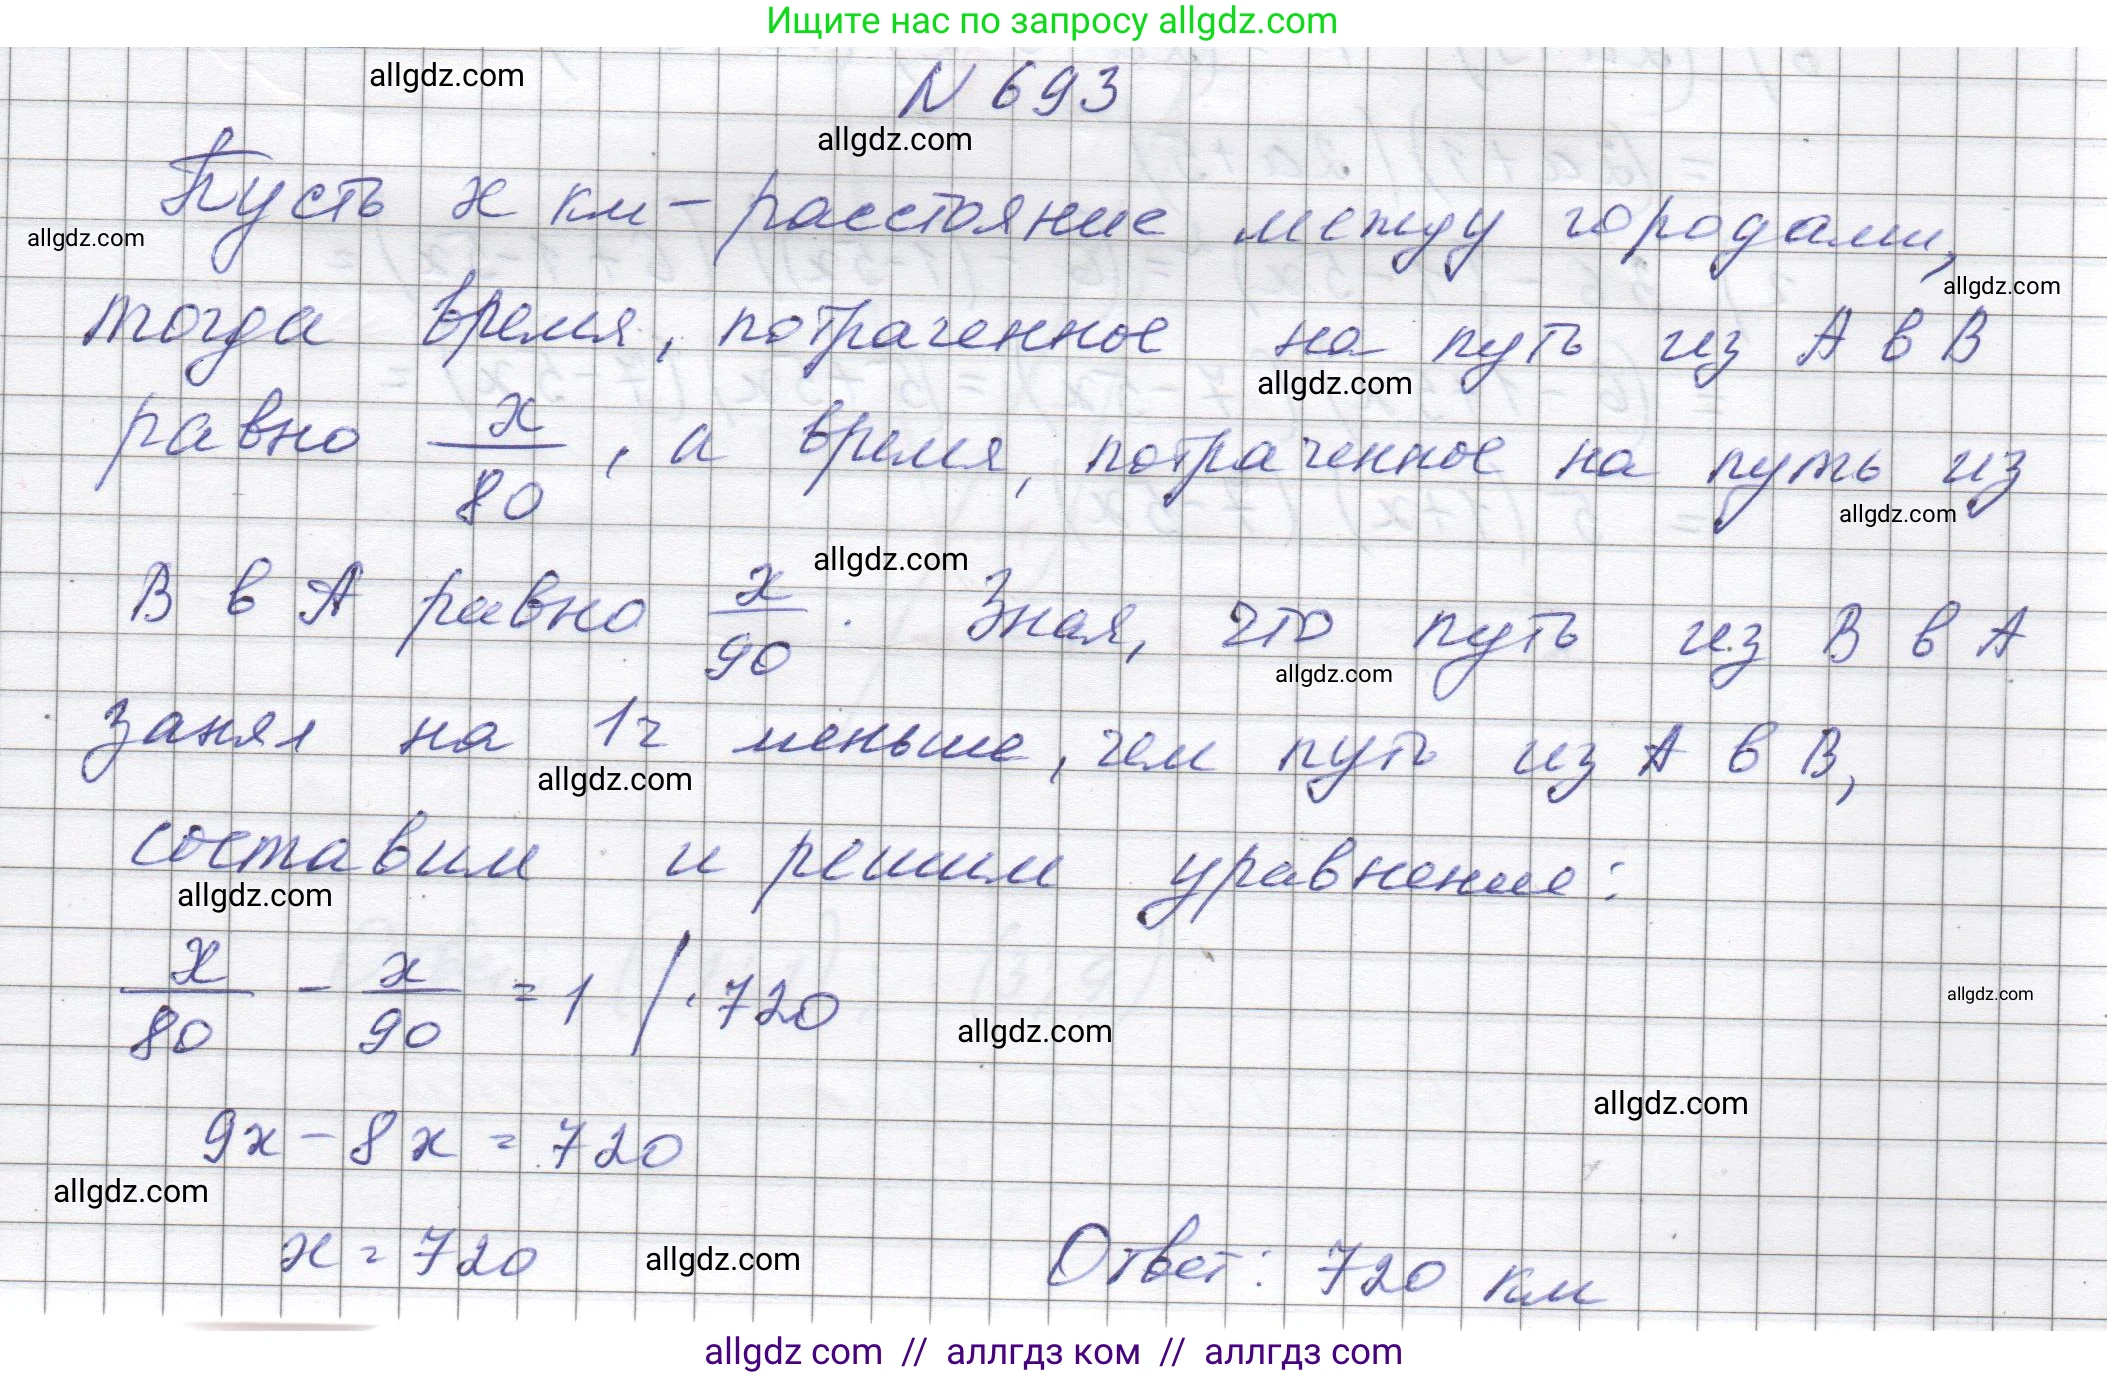 Ищите нас по запросу allgdz.com
allgdz.com
N 693
allgdz.com
Пусть x км - расстояние между городами,
allgdz.com
allgdz.com
тогда время, потраченное на путь из A в B
allgdz.com
равно x/80, а время, потраченное на путь из
allgdz.com
allgdz.com
B в A равно x/90. Зная, что путь из B в A
allgdz.com
занял на 1ч меньше, чем путь из A в B,
allgdz.com
составим и решим уравнение:
allgdz.com
x/80 - x/90 = 1 | · 720
allgdz.com
allgdz.com
allgdz.com
9x - 8x = 720
allgdz.com
x = 720
allgdz.com
Ответ: 720 км
allgdz com // аллгдз ком // аллгдз com